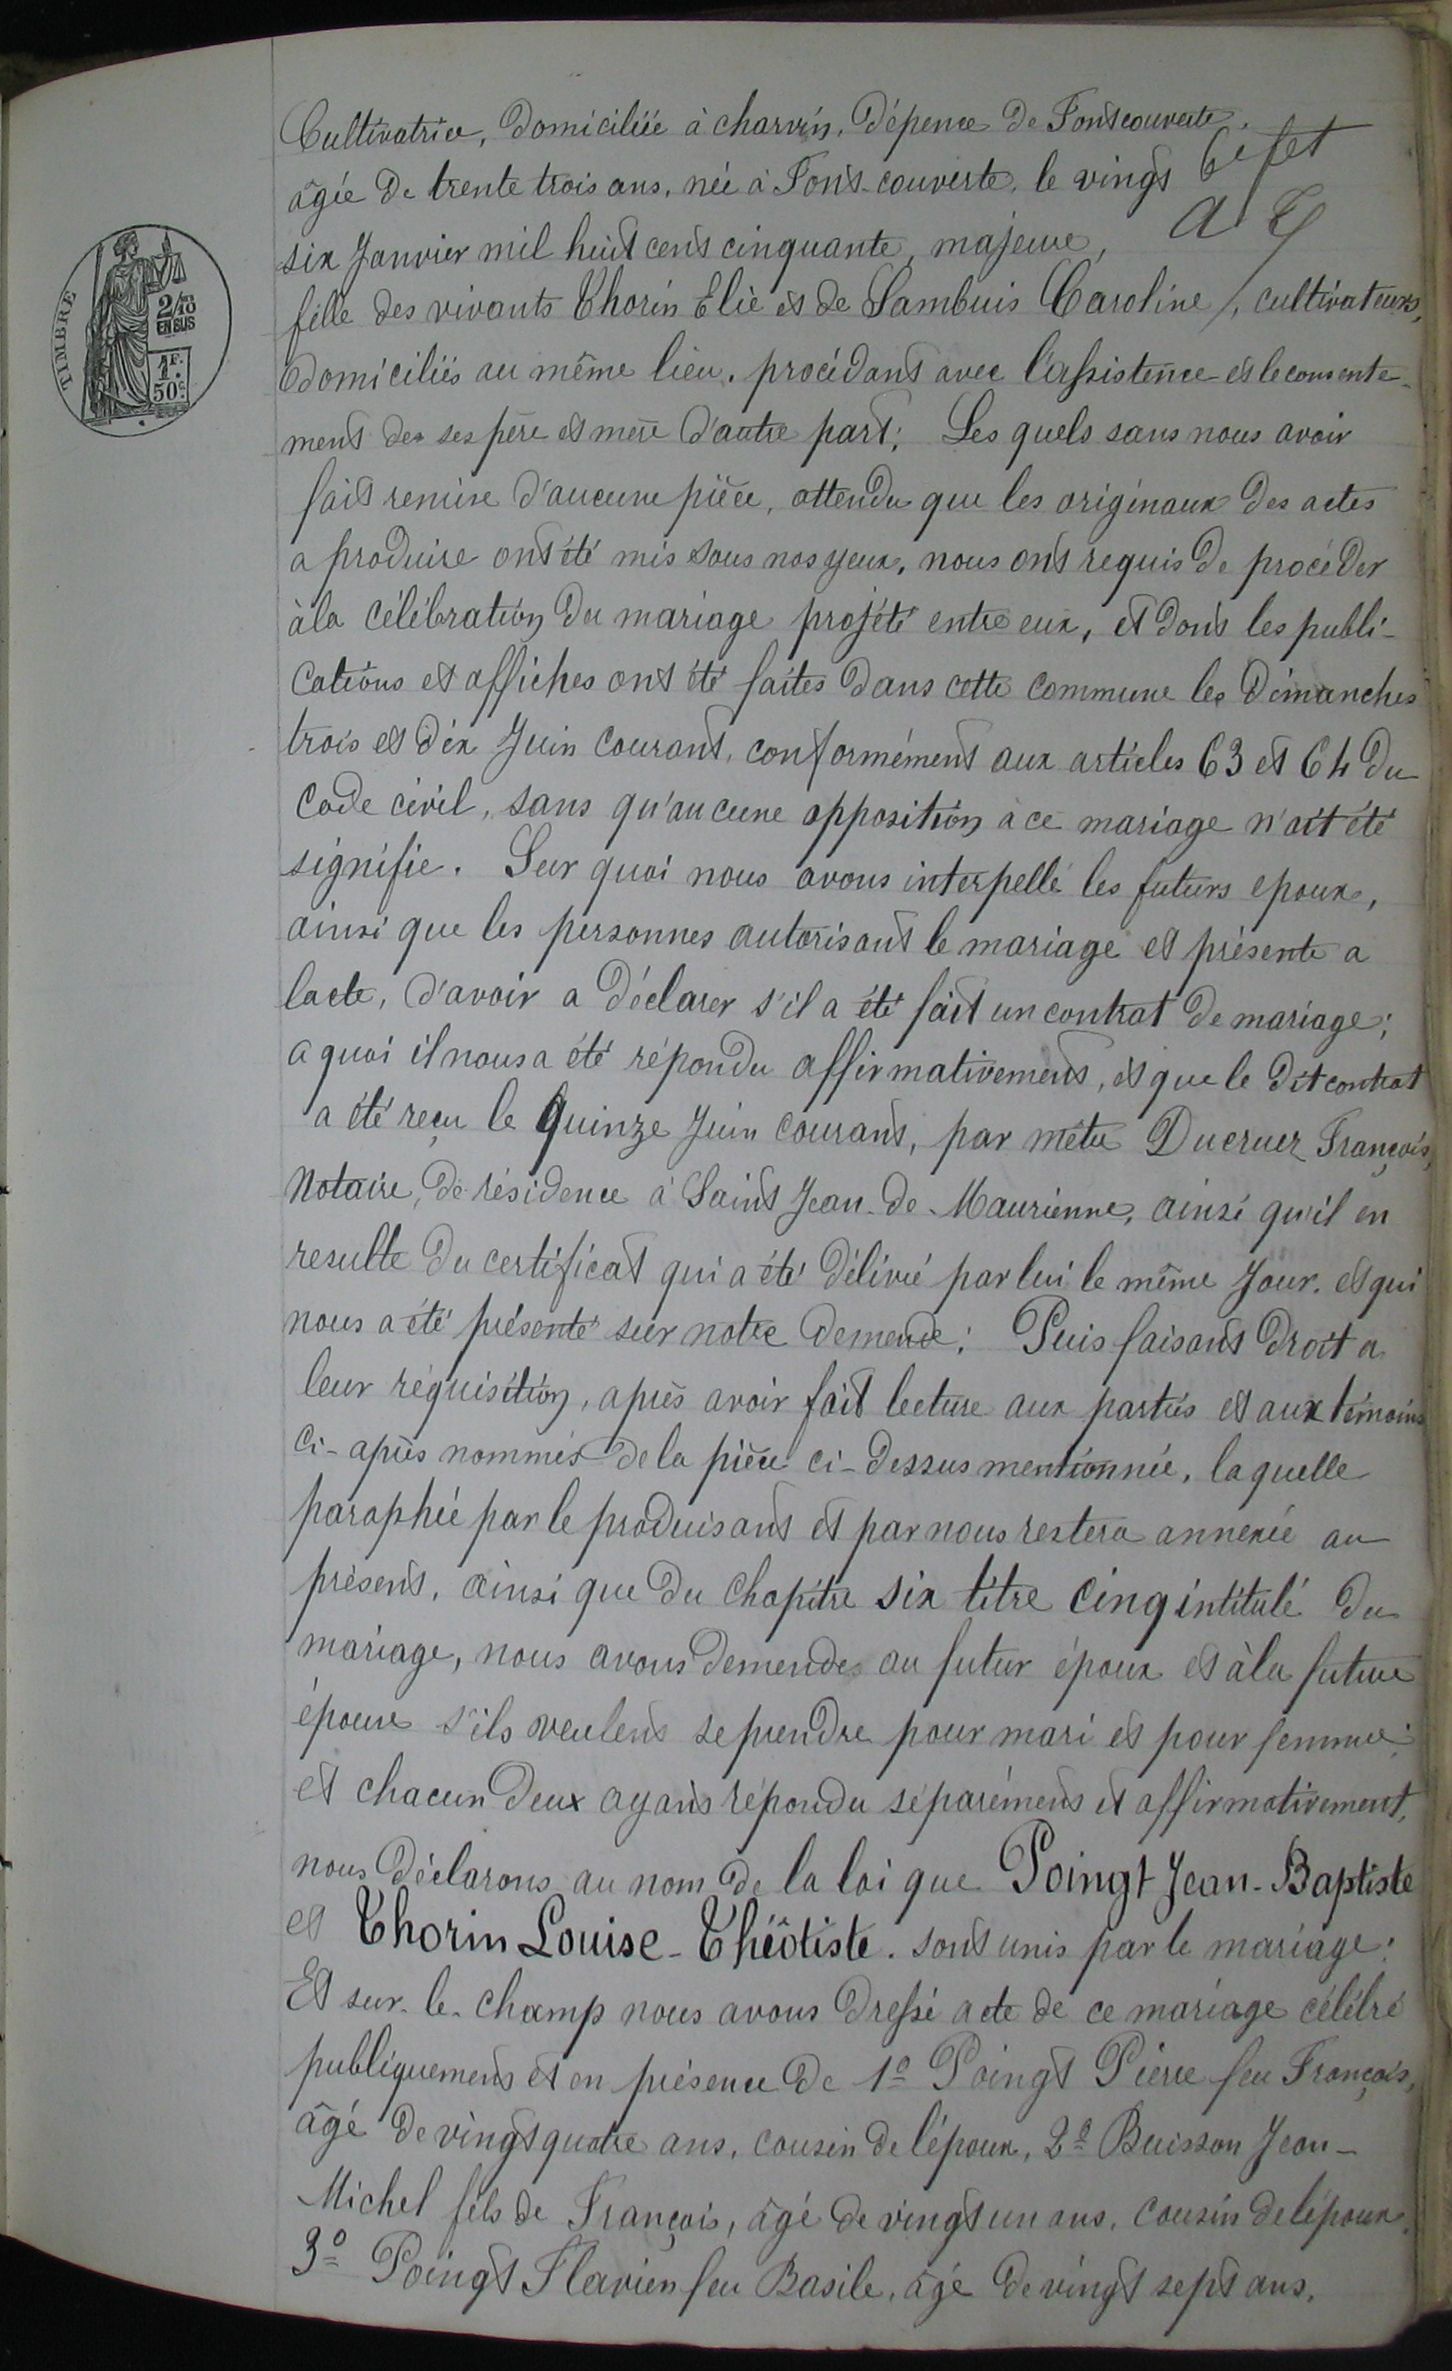 Cultivatrice, domiciliée à charvin, dépence de Fontcouverte,
âgée de trente trois ans, née à Font-couverte, le vingt
six Janvier mil huit cent cinquante, majeure,
TIMBRE
2/10
EN SUS
1F.
50c.
fille des vivants Thorin Elie et de Sambuis Caroline, cultivateurs,
domiciliés au même lieu, procédant avec l'assistence et le consente-
ment de ses père et mère d'autre part; Les quels sans nous avoir
fait remise d'aucune pièce, attendu que les originaux des actes
a produire ont été mis sous nos yeux, nous ont requis de procéder
à la célébration du mariage projété entre eux, et dont les publi-
cations et affiches ont été faites dans cette commune les dimanches
trois et dix Juin courant, conformément aux articles 63 et 64 du
code civil, sans qu'aucune opposition à ce mariage n'ait été
signifie. Sur quoi nous avons interpellé les futurs epoux,
ainsi que les personnes autorisant le mariage et présente a
lacte, d'avoir a déclarer s'il a été fait un contrat de mariage;
a quoi il nous a été répondu affirmativement, et que le dit contrat
a été reçu le quinze Juin courant, par métre Ducruez François,
Notaire, de résidence à Saint Jean-de-Maurienne, ainsi qu'il en
resulte du certificat qui a été délivré par lui le même jour, et qui
nous a été présenté sur notre demende; Puis faisant droit a
leur réquisition, après avoir fait lecture aux parties et aux témoins
ci-après nommés de la pièce ci-dessus mentionnée, laquelle
paraphée par le produisant et par nous restera annexée au
présent, ainsi que du chapitre six titre cinq intitulé du
mariage, nous avons demendes au futur époux et à la future
épouse s'ils veulent se prendre pour mari et pour femme;
et chacun deux ayant répondu séparément et affirmativement,
nous déclarons au nom de la loi que Poingt Jean-Baptiste
et Thorin Louise-Théotiste. sont unis par le mariage:
Et sur-le-champ nous avons dressé acte de ce mariage célébré
publiquement et en présence de 1º Poingt Pierre feu François,
âgé de vingt quatre ans, cousin de l'époux, 2º Buisson Jean-
Michel fils de François, âgé de vingt un ans, cousin de l'époux,
3º Poingt Flavien feu Basile, âgé de vingt sept ans,